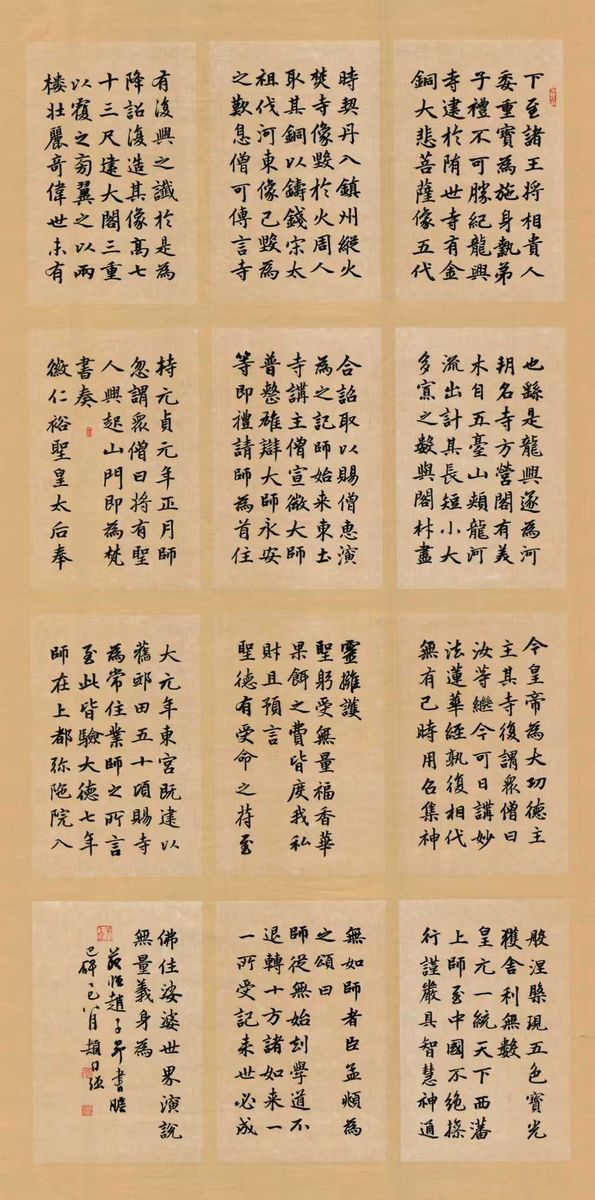 下至諸王將相貴人
委重寶為施身執弟
子禮不可勝紀龍興
寺建於隋世寺有金
銅大悲菩薩像五代
時契丹入鎮州縱火
焚寺像毀於火周人
取其銅以鑄錢宋太
祖伐河東像已毀為
之歎息僧可傳言寺
有復興之讖於是為
降詔復造其像高七
十三尺建大閣三重
以覆之旁翼之以兩
樓壯麗奇偉世未有
也繇是龍興遂為河
朔名寺方營閣有美
木自五臺山頰龍河
流出計其長短小大
多寡之數與閣材盡
合詔取以賜僧惠演
為之記師始來東土
寺講主僧宣微大師
普整雄辯大師永安
等即禮請師為首住
持元貞元年正月師
忽謂眾僧曰將有聖
人興起山門即為梵
書奏
徽仁裕聖皇太后奉
今皇帝為大功德主
主其寺復謂眾僧曰
汝等繼今可日講妙
法蓮華經孰復相代
無有已時用召集神
靈擁護
聖躬受無量福香華
果餌之費皆度我私
財且預言
聖德有受命之符至
大元年東宮既建以
舊邸田五十頃賜寺
為常住業師之所言
至此皆驗大德七年
師在上都弥陁院入
般涅槃現五色寶光
獲舍利無數
皇元一統天下西蕃
上師至中國不絕操
行謹嚴具智慧神通
無如師者臣孟頫為
之頌曰
師從無始劫學道不
退轉十方諸如來一
一所受記來世必成
佛住娑婆世界演說
無量義身為
趙子昂書膽
巴碑